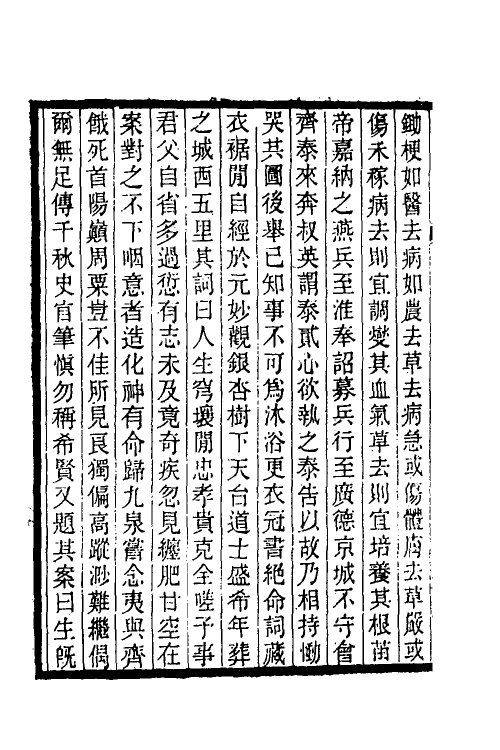 鋤梗如醫去病如農去草去病急或傷體膚去草嚴或
傷禾稼病去則宜調燮其血氣草去則宜培養其根苗
帝嘉納之燕兵至淮奉詔募兵行至廣德京城不守會
齊泰來奔叔英謂泰貳心欲執之泰告以故乃相持慟
哭共圖後舉已知事不可爲沐浴更衣冠書絕命詞藏
衣裾閒自經於元妙觀銀杏樹下天台道士盛希年葬
之城西五里其詞曰人生穹壤閒忠孝貴克全嗟予事
君父自省多過愆有志未及竟奇疾忽見纏肥甘空在
案對之不下咽意者造化神有命歸九泉嘗念夷與齊
餓死首陽巔周粟豈不佳所見良獨偏高蹤渺難繼偶
爾無足傳千秋史官筆愼勿稱希賢又題其案曰生旣